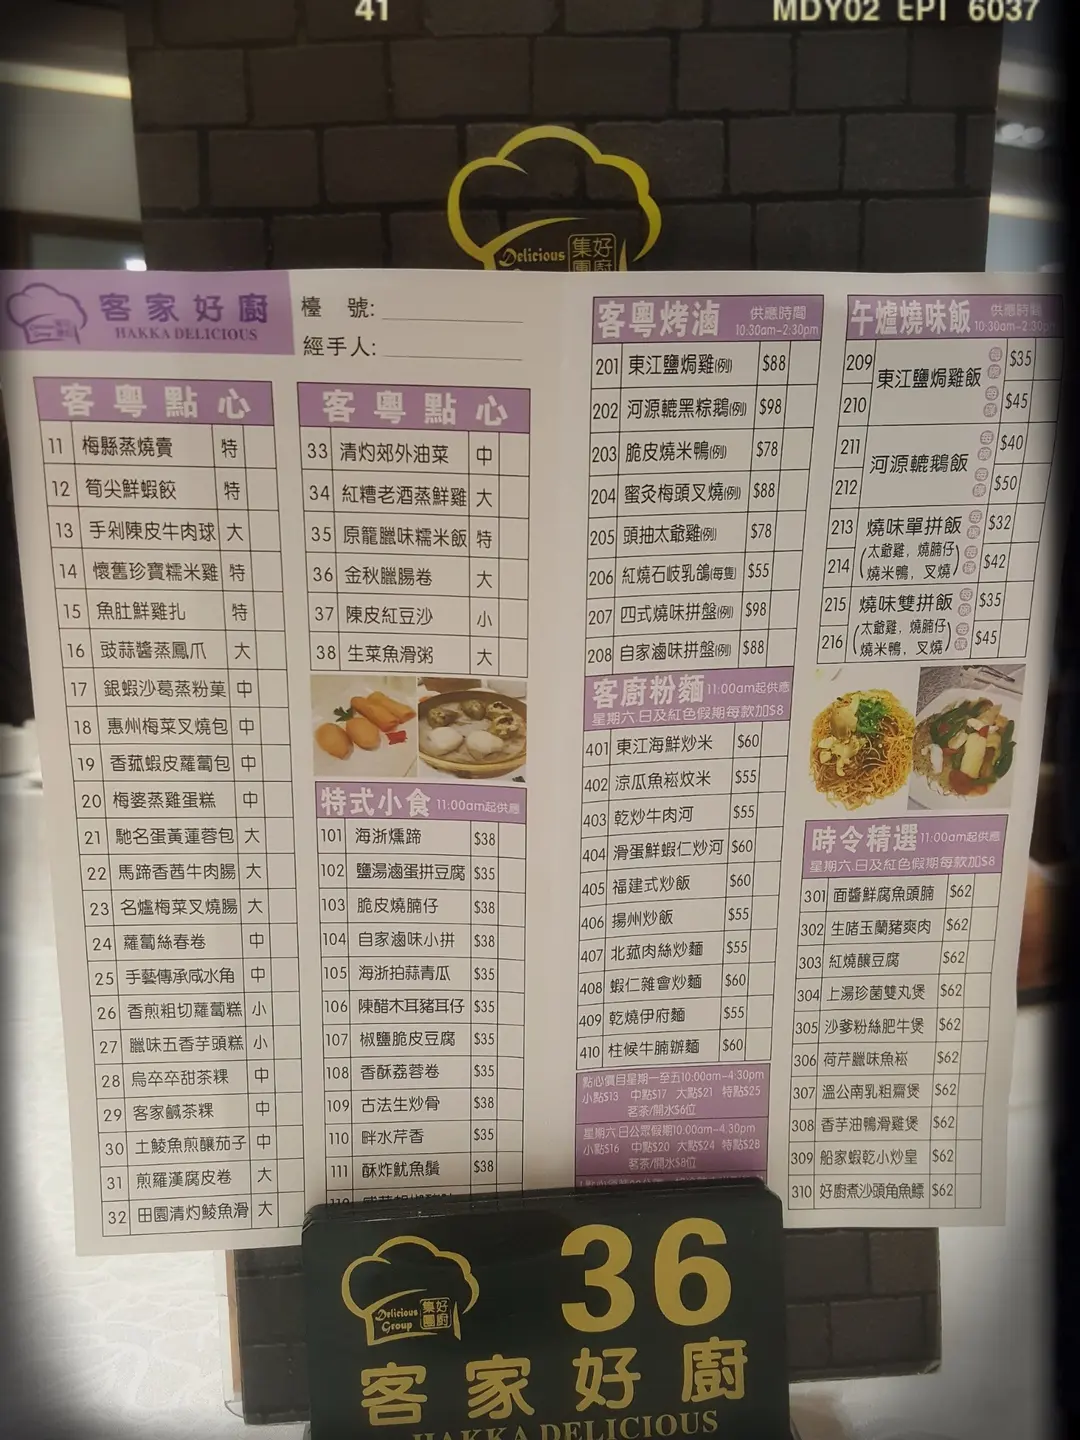 41
MDY02 EPI 6037
Delicious
集好
團廚
客家好廚
HAKKA DELICIOUS
檯 號:
經手人:
客粵點心
11 梅縣蒸燒賣 特
12 筍尖鮮蝦餃 特
13 手剁陳皮牛肉球 大
14 懷舊珍寶糯米雞 特
15 魚肚鮮雞扎 特
16 豉蒜醬蒸鳳爪 大
17 銀蝦沙葛蒸粉菓 中
18 惠州梅菜叉燒包 中
19 香菰蝦皮蘿蔔包 中
20 梅婆蒸雞蛋糕 中
21 馳名蛋黃蓮蓉包 大
22 馬蹄香茜牛肉腸 大
23 名爐梅菜叉燒腸 大
24 蘿蔔絲春卷 中
25 手藝傳承咸水角 中
26 香煎粗切蘿蔔糕 小
27 臘味五香芋頭糕 小
28 烏卒卒甜茶粿 中
29 客家鹹茶粿 中
30 土鯪魚煎釀茄子 中
31 煎羅漢腐皮卷 大
32 田園清灼鯪魚滑 大
客粵點心
33 清灼郊外油菜 中
34 紅糟老酒蒸鮮雞 大
35 原籠臘味糯米飯 特
36 金秋臘腸卷 大
37 陳皮紅豆沙 小
38 生菜魚滑粥 大
特式小食 11:00am起供應
101 海浙燻蹄 $38
102 鹽湯滷蛋拼豆腐 $35
103 脆皮燒腩仔 $38
104 自家滷味小拼 $38
105 海浙拍蒜青瓜 $35
106 陳醋木耳豬耳仔 $35
107 椒鹽脆皮豆腐 $35
108 香酥荔蓉卷 $35
109 古法生炒骨 $38
110 畔水芹香 $35
111 酥炸魷魚鬚 $38
客粵烤滷 供應時間
10:30am-2:30pm
201 東江鹽焗雞(例) $88
202 河源轆黑棕鵝(例) $98
203 脆皮燒米鴨(例) $78
204 蜜灸梅頭叉燒(例) $88
205 頭抽太爺雞(例) $78
206 紅燒石岐乳鴿(每隻) $55
207 四式燒味拼盤(例) $98
208 自家滷味拼盤(例) $88
客廚粉麵 11:00am起供應
星期六.日及紅色假期每款加$8
401 東江海鮮炒米 $60
402 涼瓜魚崧炆米 $55
403 乾炒牛肉河 $55
404 滑蛋鮮蝦仁炒河 $60
405 福建式炒飯 $60
406 揚州炒飯 $55
407 北菰肉絲炒麵 $55
408 蝦仁雜會炒麵 $60
409 乾燒伊府麵 $55
410 柱候牛腩辦麵 $60
點心價目星期一至五10:00am-4:30pm
小點$13 中點$17 大點$21 特點$25
茗茶/開水$6位
星期六.日公眾假期10.00am-4.30pm
小點$16 中點$20 大點$24 特點$28
茗茶/開水$8位
午爐燒味飯 供應時間
10:30am-2:30pm
209 東江鹽焗雞飯 每碗 $35
210 每碟 $45
211 河源轆鵝飯 每碗 $40
212 每碟 $50
213 燒味單拼飯 每碗 $32
214 (太爺雞, 燒腩仔 燒米鴨, 叉燒) 每碟 $42
215 燒味雙拼飯 每碗 $35
216 (太爺雞, 燒腩仔 燒米鴨, 叉燒) 每碟 $45
時令精選 11:00am起供應
星期六.日及紅色假期每款加$8
301 面醬鮮腐魚頭腩 $62
302 生啫玉蘭豬爽肉 $62
303 紅燒釀豆腐 $62
304 上湯珍菌雙丸煲 $62
305 沙爹粉絲肥牛煲 $62
306 荷芹臘味魚崧 $62
307 溫公南乳粗齋煲 $62
308 香芋油鴨滑雞煲 $62
309 船家蝦乾小炒皇 $62
310 好廚煮沙頭角魚鰾 $62
Delicious
Group
集好
團廚
36
客家好廚
HAKKA DELICIOUS